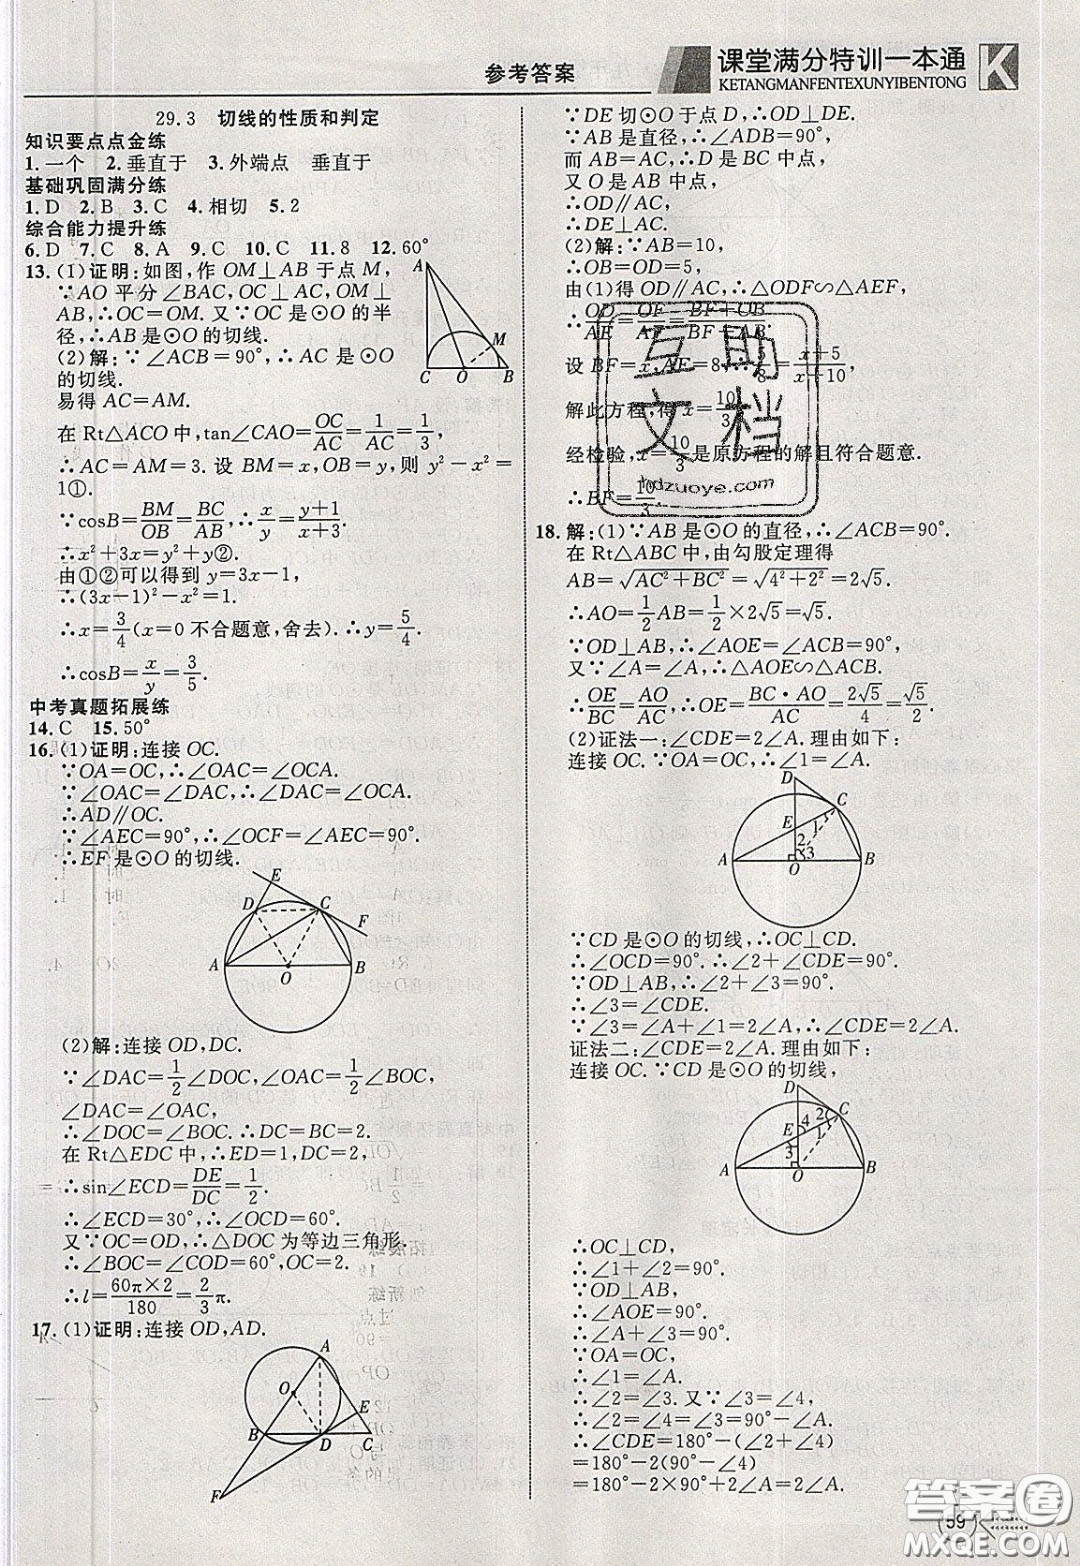 参考答案
课堂满分特训一本通
KETANGMANFENTEXUNYIBENTONG
K
29.3 切线的性质和判定
知识要点点金练
1.一个 2.垂直于 3.外端点 垂直于
基础巩固满分练
1.D 2.B 3.C 4.相切 5.2
综合能力提升练
6.D 7.C 8.A 9.C 10.C 11.8 12.60°
13.(1)证明:如图,作OM⊥AB于点M,
∵AO平分∠BAC,OC⊥AC,OM⊥
AB,∴OC=OM.又∵OC是⊙O的半
径,∴AB是⊙O的切线.
(2)解:∵∠ACB=90°,∴AC是⊙O
的切线.
易得AC=AM.
在Rt△ACO中,tan∠CAO=OC/AC=1/AC=1/3,
∴AC=AM=3.设BM=x,OB=y,则y²-x²=
1①.
∵cosB=BM/OB=BC/AB,∴x/y=(y+1)/(x+3).
∴x²+3x=y²+y②.
由①②可以得到y=3x-1,
∴(3x-1)²-x²=1.
∴x=3/4(x=0不合题意,舍去).∴y=5/4.
∴cosB=x/y=3/5.
A
M
C O B
中考真题拓展练
14.C 15.50°
16.(1)证明:连接OC.
∵OA=OC,∴∠OAC=∠OCA.
∵∠OAC=∠DAC,∴∠DAC=∠OCA.
∴AD∥OC.
∵∠AEC=90°,∴∠OCF=∠AEC=90°.
∴EF是⊙O的切线.
E
D C F
A O B
(2)解:连接OD,DC.
∵∠DAC=1/2∠DOC,∠OAC=1/2∠BOC,
∠DAC=∠OAC,
∴∠DOC=∠BOC.∴DC=BC=2.
在Rt△EDC中,∴ED=1,DC=2,
∴sin∠ECD=DE/DC=1/2.
∴∠ECD=30°,∴∠OCD=60°.
又∵OC=OD,∴△DOC为等边三角形.
∴∠BOC=∠COD=60°,OC=2.
∴l=60π×2/180=2/3π.
17.(1)证明:连接OD,AD.
A
O
E
B D C
F
∵DE切⊙O于点D,∴OD⊥DE.
∵AB是直径,∴∠ADB=90°,
而AB=AC,∴D是BC中点,
又O是AB中点,
∴OD∥AC,
∴DE⊥AC.
(2)解:∵AB=10,
∴OB=OD=5,
由(1)得OD∥AC,∴△ODF∽△AEF,
∴OD/AE=OF/AF=(BF+OB)/(BF+AB).
设BF=x,AE=8,∴5/8=(x+5)/(x+10),
解此方程,得x=10/3,
经检验,x=10/3是原方程的解且符合题意.
∴BF=10/3.
互助
文档
hdzuoye.com
18.解:(1)∵AB是⊙O的直径,∴∠ACB=90°.
在Rt△ABC中,由勾股定理得
AB=√(AC²+BC²)=√(4²+2²)=2√5.
∴AO=1/2AB=1/2×2√5=√5.
∵OD⊥AB,∴∠AOE=∠ACB=90°.
又∵∠A=∠A,∴△AOE∽△ACB.
∴OE/BC=AO/AC,∴OE=BC·AO/AC=2√5/4=√5/2.
(2)证法一:∠CDE=2∠A.理由如下:
连接OC.∵OA=OC,∴∠1=∠A.
D
C
E 1
2 3
A O B
∵CD是⊙O的切线,∴OC⊥CD.
∴∠OCD=90°.∴∠2+∠CDE=90°.
∵OD⊥AB,∴∠2+∠3=90°.
∴∠3=∠CDE.
∵∠3=∠A+∠1=2∠A,∴∠CDE=2∠A.
证法二:∠CDE=2∠A.理由如下:
连接OC.∵CD是⊙O的切线,
D
C
E 4 2
1
3
A O B
∴OC⊥CD,
∴∠1+∠2=90°.
∵OD⊥AB,
∴∠AOE=90°.
∴∠A+∠3=90°.
∵OA=OC,
∴∠1=∠A.
∴∠2=∠3.又∵∠3=∠4,
∴∠2=∠4=90°-∠1=90°-∠A.
∴∠CDE=180°-(∠2+∠4)
=180°-2(90°-∠A)
=180°-2×90°+2∠A=2∠A.
答案圈
MXQE.COM
59